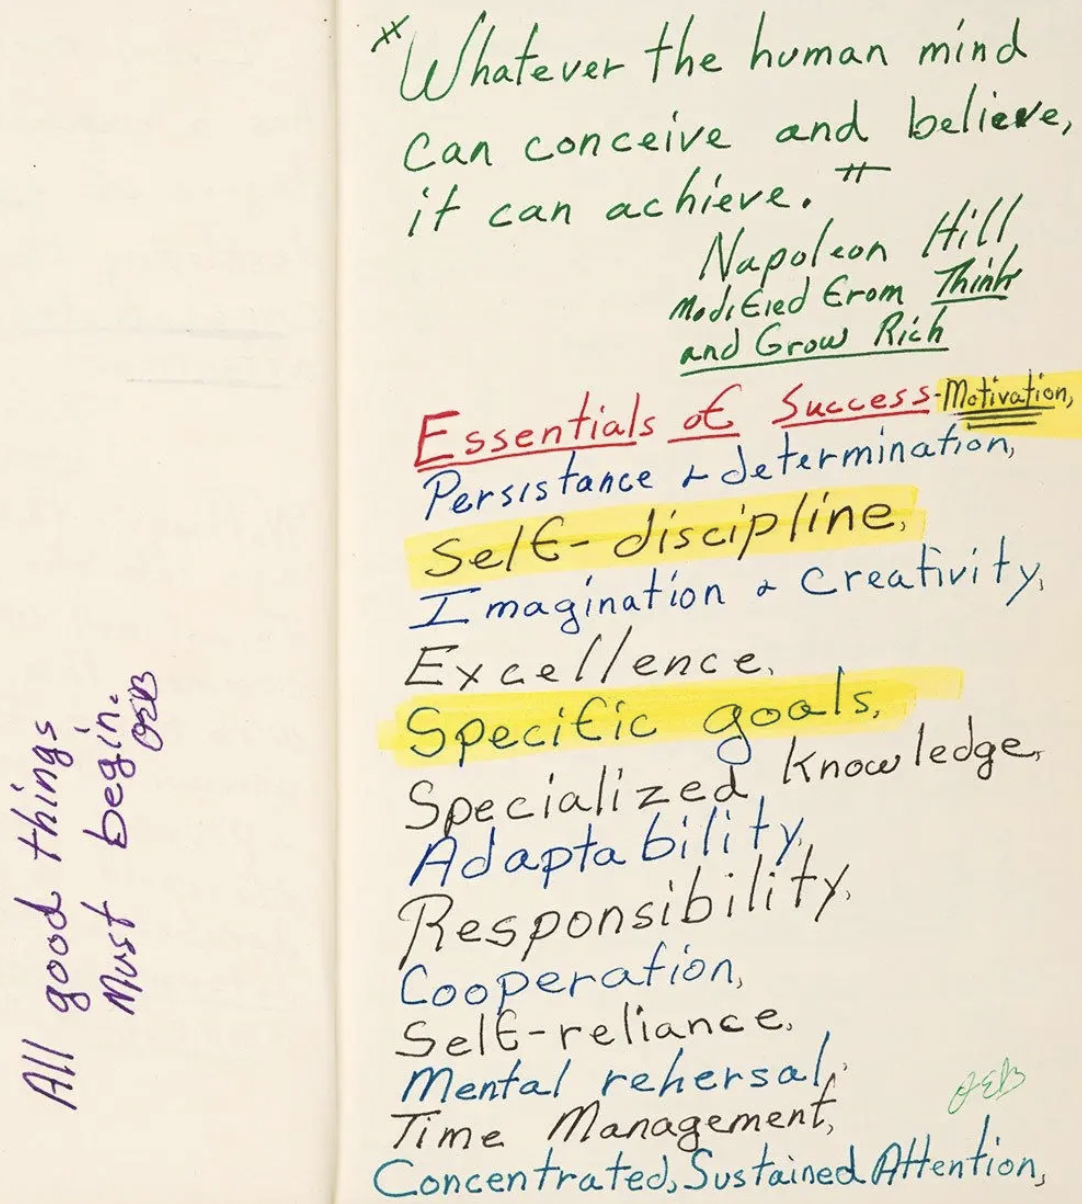 All good things
Must begin.
OEB
"Whatever the human mind
can conceive and believe,
it can achieve."
Napoleon Hill
Modified from Think
and Grow Rich
Essentials of Success-Motivation,
Persistance & determination,
Self-discipline,
Imagination & Creativity,
Excellence,
Specific goals,
Specialized Knowledge,
Adaptability,
Responsibility,
Cooperation,
Self-reliance,
Mental rehersal,
OEB
Time Management,
Concentrated, Sustained Attention,